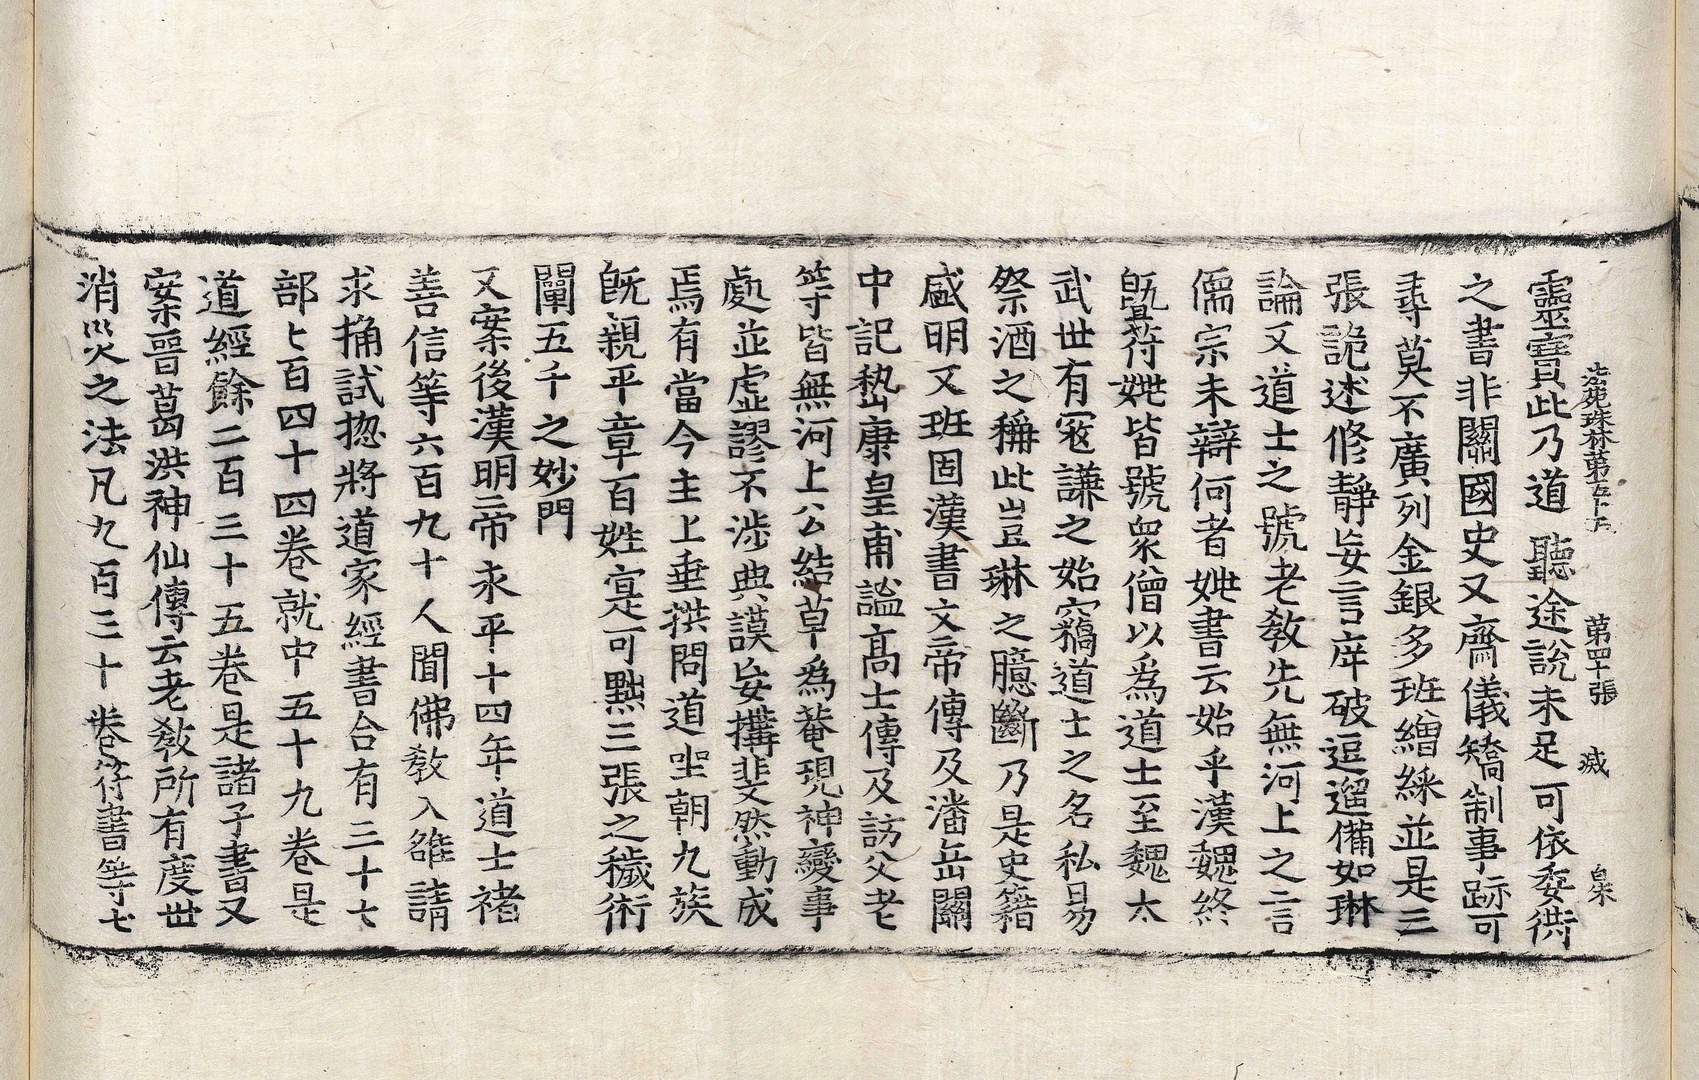 法苑珠林第五十五 第四十張 滅
靈寶此乃道聽途說未足可依委衖
之書非關國史又齊儀矯制事跡可
尋莫不廣列金銀多班繒綵並是三
張詭述修靜妄言庠破逗遛備如琳
論又道士之號老教先無河上之言
儒宗未辯何者姚書云始乎漢魏終
曁苻姚皆號衆僧以爲道士至魏太
武世有寇謙之始竊道士之名私易
祭酒之稱此豈琳之臆斷乃是史籍
盛明又班固漢書文帝傳及潘岳關
中記嵇康皇甫謐高士傳及訪父老
等皆無河上公結草爲菴現神變事
處並虛謬不涉典謨妄搆斐然動成
焉有當今主上垂拱問道坐朝九族
旣親平章百姓寔可黜三張之穢術
闡五千之妙門
又案後漢明帝永平十四年道士褚
善信等六百九十人聞佛教入雒請
求捔試揔將道家經書合有三十七
部七百四十四卷就中五十九卷是
道經餘二百三十五卷是諸子書又
案晉葛洪神仙傳云老教所有度世
消災之法凡九百三十卷符書等七